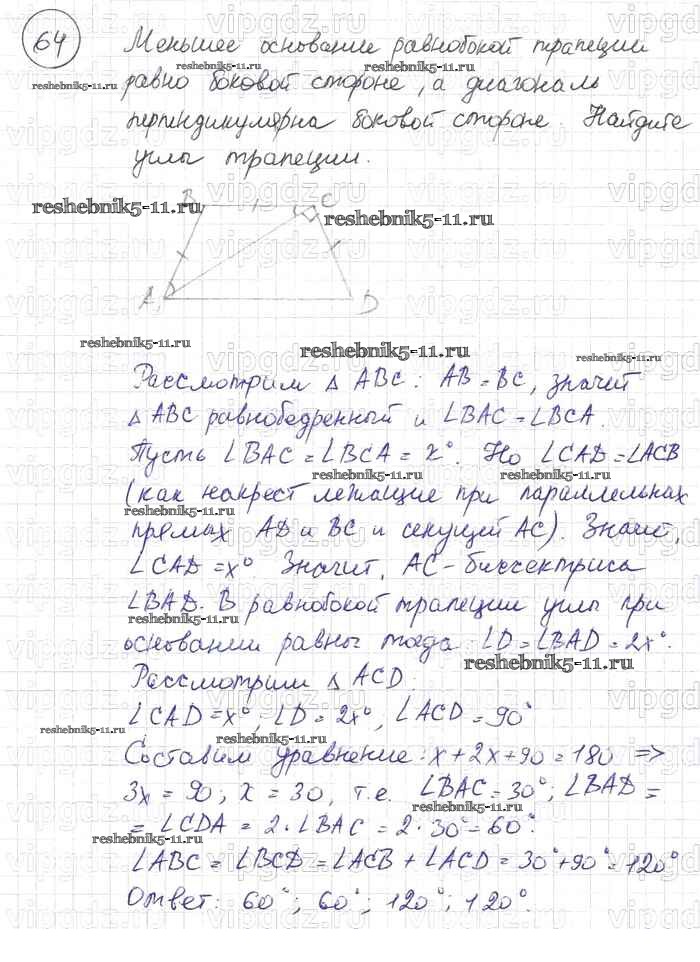 64
Меньшее основание равнобокой трапеции
равно боковой стороне, а диагональ
перпендикулярна боковой стороне. Найдите
углы трапеции.
B C
A D
Рассмотрим Δ ABC: AB = BC, значит
Δ ABC равнобедренный и ∠BAC = ∠BCA.
Пусть ∠BAC = ∠BCA = x°. Но ∠CAD = ∠ACB
(как накрест лежащие при параллельных
прямых AD и BC и секущей AC). Значит,
∠CAD = x°. Значит, AC - биссектриса
∠BAD. В равнобокой трапеции углы при
основании равны тогда ∠D = ∠BAD = 2x°.
Рассмотрим Δ ACD:
∠CAD = x°; ∠D = 2x°, ∠ACD = 90°
Составим уравнение: x + 2x + 90 = 180 =>
3x = 90; x = 30, т.е. ∠BAC = 30°; ∠BAD =
= ∠CDA = 2·∠BAC = 2·30° = 60°.
∠ABC = ∠BCD = ∠ACB + ∠ACD = 30° + 90° = 120°
Ответ: 60°; 60°; 120°; 120°.
reshebnik5-11.ru
vipgdz.ru